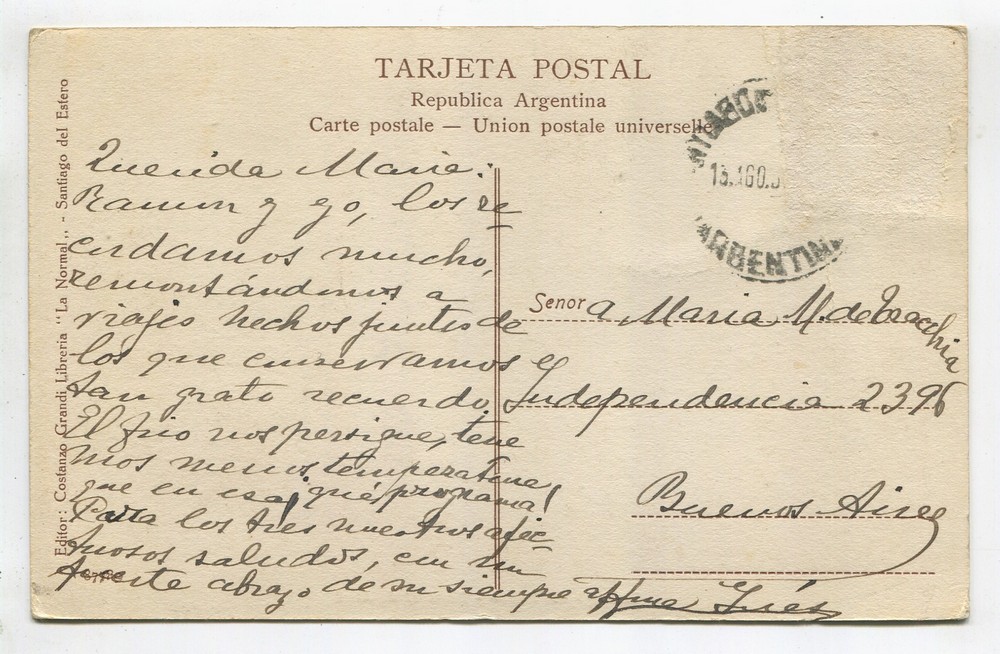 TARJETA POSTAL
Republica Argentina
Carte postale — Union postale universelle
Editor: Costanzo Grandi Libreria "La Normal„ - Santiago del Estero
13. AGO.
ARGENTINA
Querida Maria:
Ramon y yo, los re
cordamos mucho,
remontándonos a
viajes hechos juntos de
los que conservamos el
tan grato recuerdo
El frio nos persigue, tene
mos menos temperatura
que en esa ¡qué programa!
Para los tres nuestros afec-
tuosos saludos, con un
fuerte abrazo de su siempre affma Inés
Senora Maria M. de Tracchia
Independencia 2396
Buenos Aires